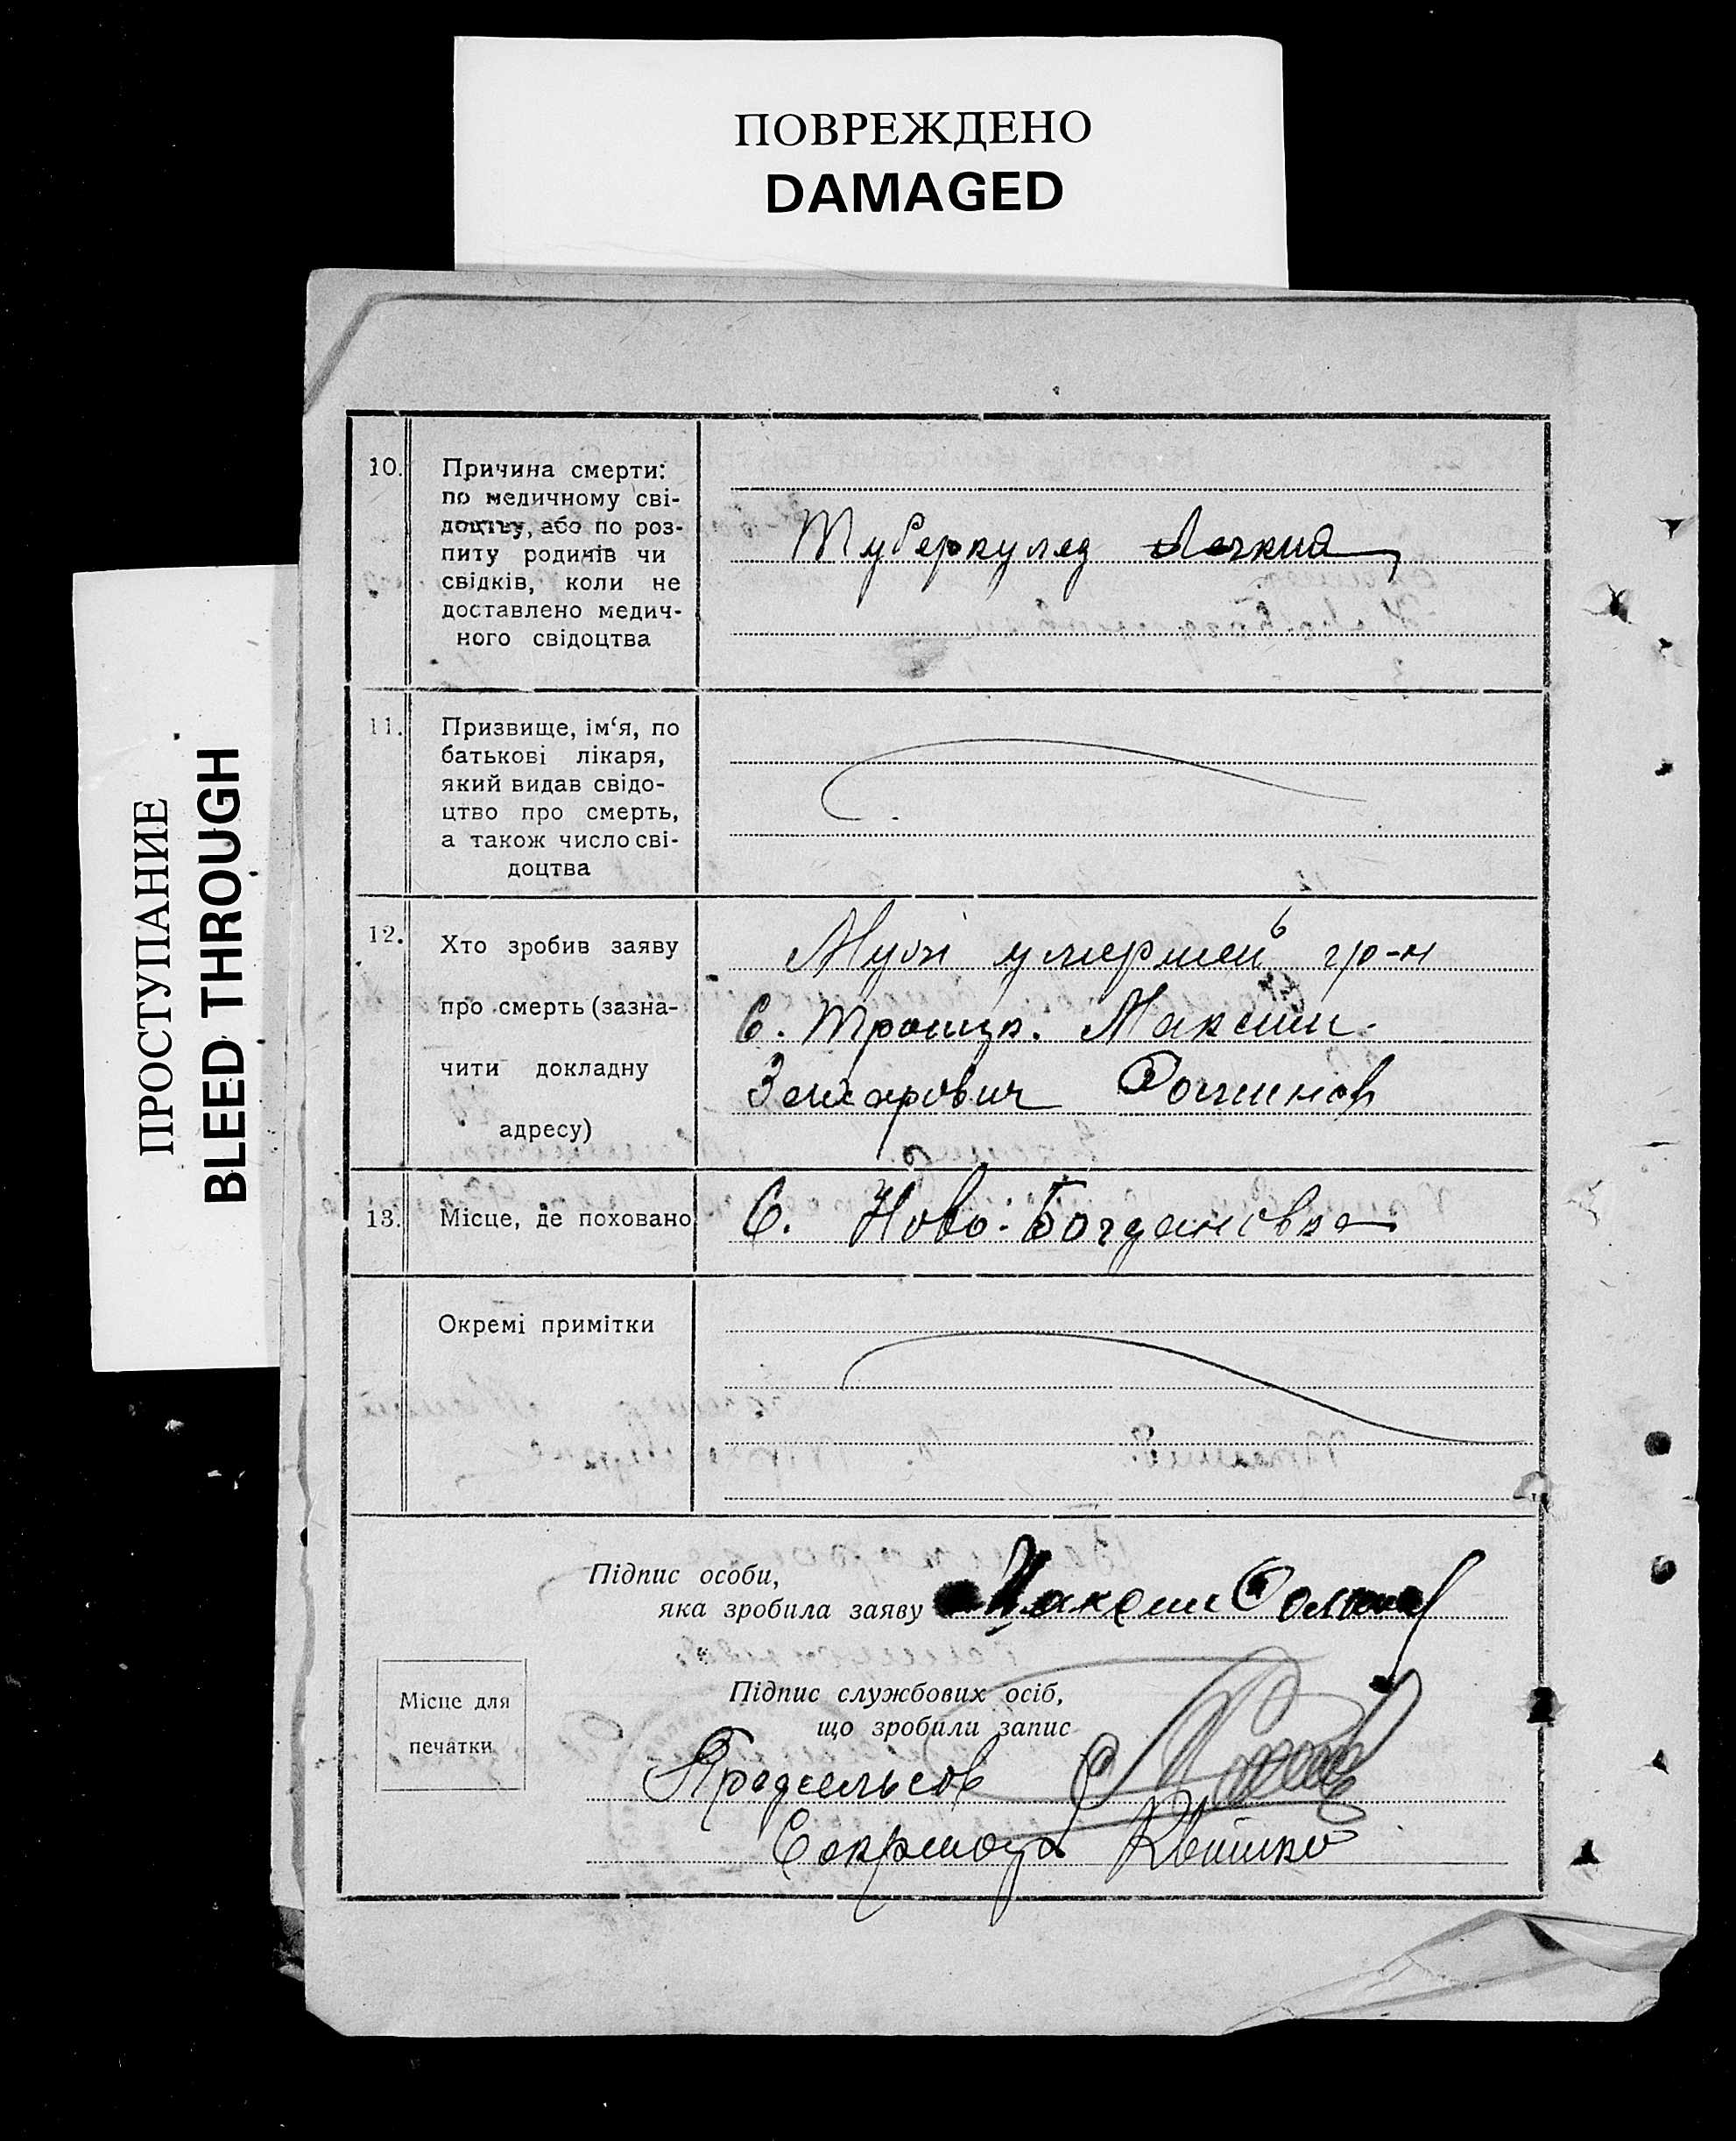 ПОВРЕЖДЕНО
DAMAGED
ПРОСТУПАНИЕ
BLEED THROUGH
10.
Причина смерти:
по медичному сві-
доцтву, або по роз-
питу родичів чи
свідків, коли не
доставлено медич-
ного свідоцтва
Туберкулез
11.
Призвище, ім‘я, по
батькові лікаря,
який видав свідо-
цтво про смерть,
а також число сві-
доцтва
12.
Хто зробив заяву
про смерть (зазна-
чити докладну
адресу)
Муж умершей гр-н
С. Троицк. Максим
Захарович
13.
Місце, де поховано
С. Ново-Богдановка
Окремі примітки
Підпис особи,
яка зробила заяву
Максим
Місце для
печатки
Підпис службових осіб,
що зробили запис
Предсельсов
Секретарь